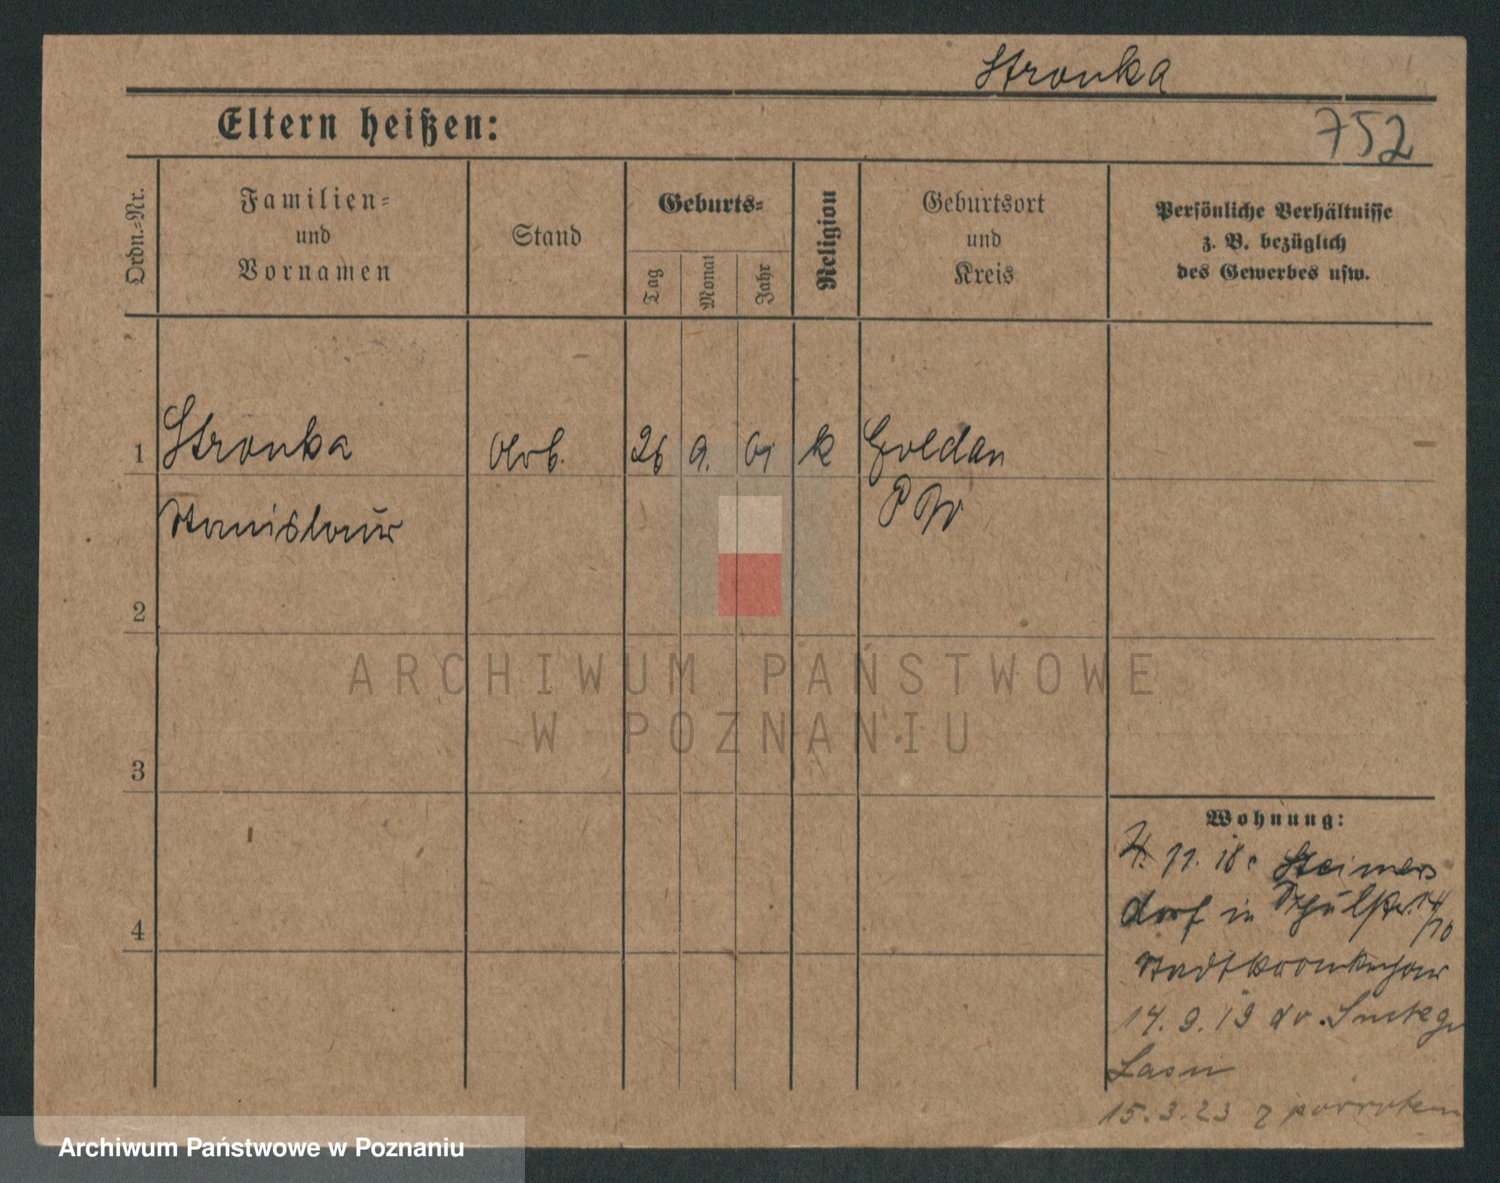 Stronka
752
Eltern heißen:
Ordn.-Nr.
Familien-
und
Vornamen
Stand
Geburts-
Tag
Monat
Jahr
Religion
Geburtsort
und
Kreis
Persönliche Verhältnisse
z. B. bezüglich
des Gewerbes usw.
1
Stronka
Arb.
26
9.
01
k
Goldau
Stanislaus
2
ARCHIWUM PAŃSTWOWE
W POZNANIU
3
Wohnung:
11. 18.
dorf in
4
14
/10
Stadtkrankenhaus
17. 9. 19
15. 3. 23 z powrotem
Archiwum Państwowe w Poznaniu